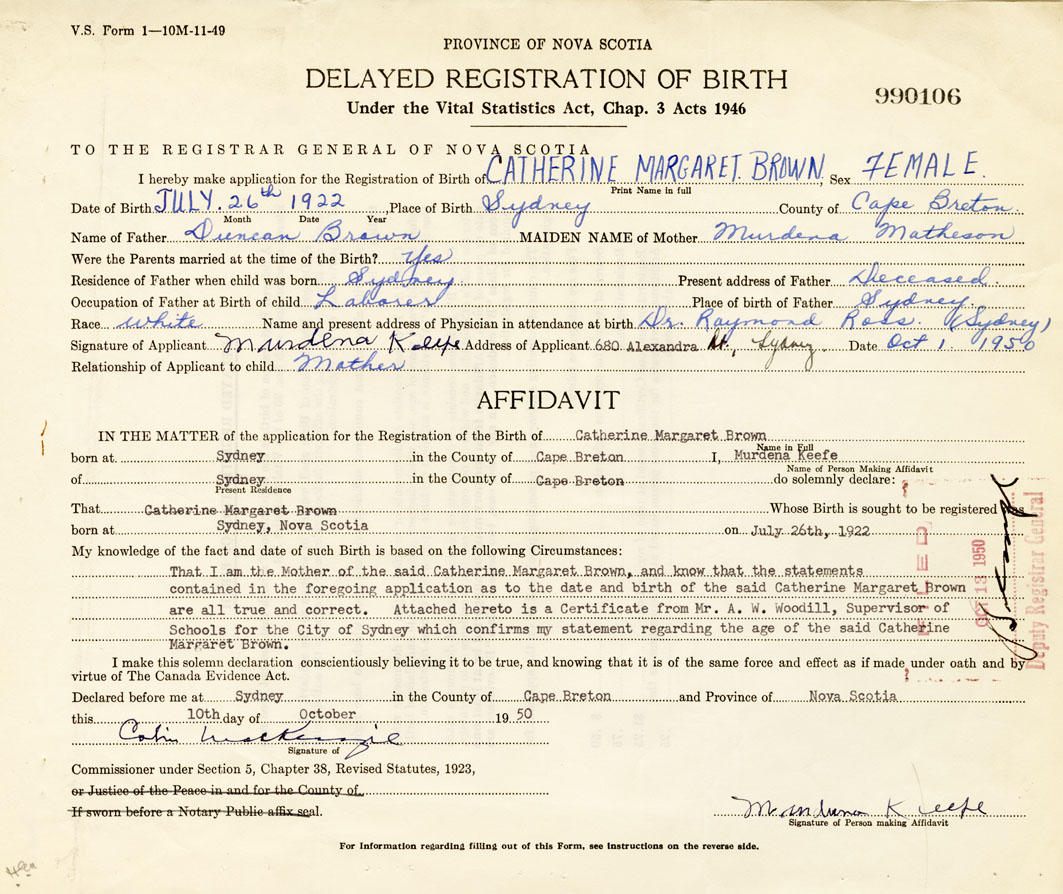 V.S. Form 1—10M-11-49
PROVINCE OF NOVA SCOTIA
DELAYED REGISTRATION OF BIRTH
990106
Under the Vital Statistics Act, Chap. 3 Acts 1946
TO THE REGISTRAR GENERAL OF NOVA SCOTIA
I hereby make application for the Registration of Birth of CATHERINE MARGARET. BROWN, Sex FEMALE.
Print Name in full
Date of Birth JULY. 26th 1922, Place of Birth Sydney County of Cape Breton.
Month Date Year
Name of Father Duncan Brown MAIDEN NAME of Mother Murdena Matheson
Were the Parents married at the time of the Birth? Yes
Residence of Father when child was born Sydney Present address of Father Deceased.
Occupation of Father at Birth of child Laborer Place of birth of Father Sydney.
Race White Name and present address of Physician in attendance at birth Dr. Raymond Ross. (Sydney)
Signature of Applicant Murdena Keefe Address of Applicant 680 Alexandra St., Sydney Date Oct 1 1950
Relationship of Applicant to child Mother
AFFIDAVIT
IN THE MATTER of the application for the Registration of the Birth of Catherine Margaret Brown
Name in Full
born at Sydney in the County of Cape Breton I, Murdena Keefe
Name of Person Making Affidavit
of Sydney in the County of Cape Breton do solemnly declare:
Present Residence
That Catherine Margaret Brown Whose Birth is sought to be registered was
born at Sydney, Nova Scotia on July 26th, 1922
My knowledge of the fact and date of such Birth is based on the following Circumstances:
That I am the Mother of the said Catherine Margaret Brown, and know that the statements
contained in the foregoing application as to the date and birth of the said Catherine Margaret Brown
are all true and correct. Attached hereto is a Certificate from Mr. A. W. Woodill, Supervisor of
Schools for the City of Sydney which confirms my statement regarding the age of the said Catherine
Margaret Brown.
FILED
OCT 13 1950
Deputy Registrar General
I make this solemn declaration conscientiously believing it to be true, and knowing that it is of the same force and effect as if made under oath and by
virtue of The Canada Evidence Act.
Declared before me at Sydney in the County of Cape Breton and Province of Nova Scotia
this 10th day of October 19 50
Colin MacKenzie
Signature of
Commissioner under Section 5, Chapter 38, Revised Statutes, 1923,
or Justice of the Peace in and for the County of
If sworn before a Notary Public affix seal.
Murdena Keefe
Signature of Person making Affidavit
For Information regarding filling out of this Form, see instructions on the reverse side.